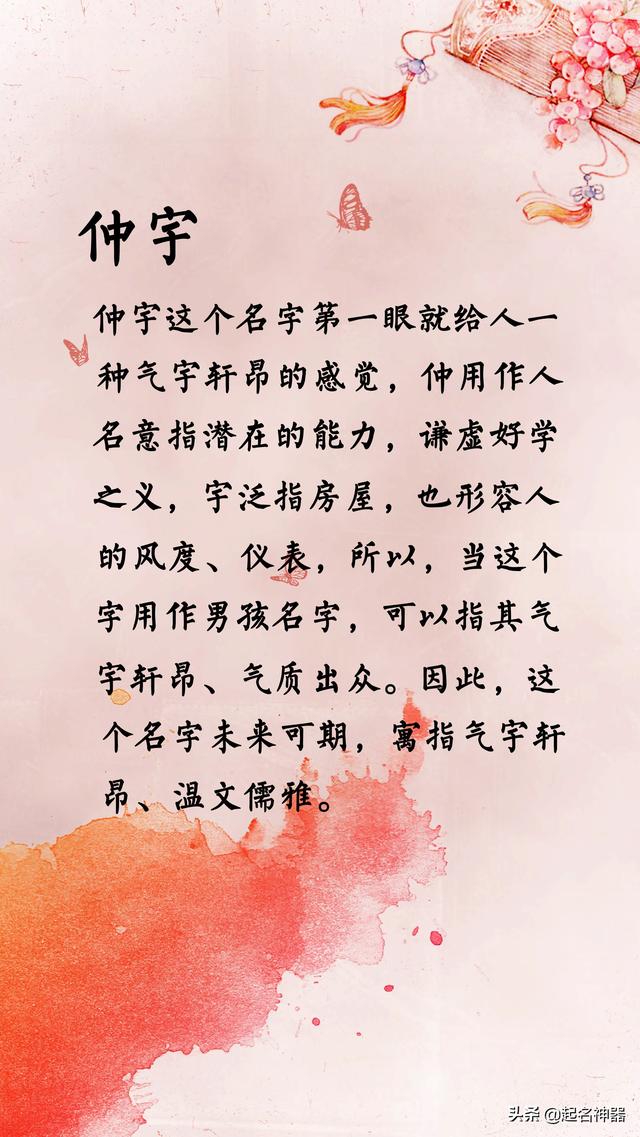 仲宇
仲宇这个名字第一眼就给人一
种气宇轩昂的感觉，仲用作人
名意指潜在的能力，谦虚好学
之义，宇泛指房屋，也形容人
的风度、仪表，所以，当这个
字用作男孩名字，可以指其气
宇轩昂、气质出众。因此，这
个名字未来可期，寓指气宇轩
昂、温文儒雅。
头条 @起名神器